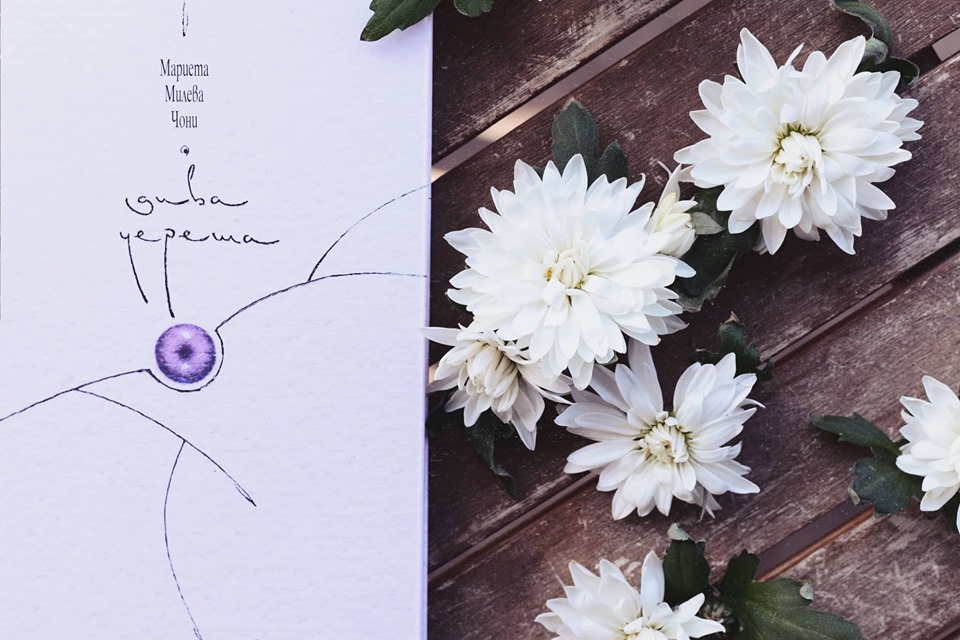 Мариета
Милева
Чони
дива
череша